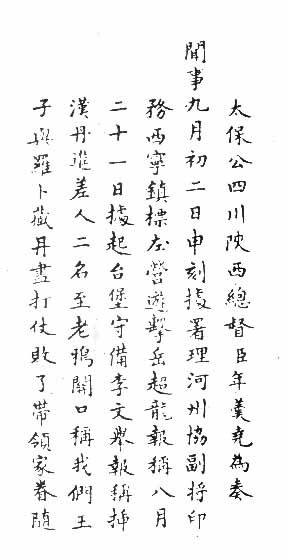 太保公四川陝西總督臣年羹堯為奏
聞事九月初二日申刻據署理河州協副將印
務西寧鎮標左營遊擊岳超龍報稱八月
二十一日據起台堡守備李文舉報稱揷
漢丹進差人二名至老鴉關口稱我們王
子與羅卜藏丹盡打仗敗了帶領家眷隨